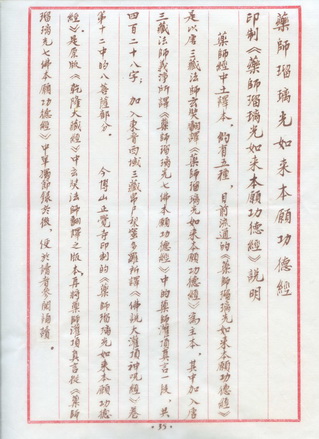 藥師瑠璃光如来本願功德經
印制《藥師瑠璃光如来本願功德經》説明
藥師經中土譯本，約有五種，目前流通的《藥師瑠璃光如来本願功德經》
是以唐三藏法師玄奘翻譯《藥師瑠璃光如来本願功德經》為主本，其中加入唐
三藏法師義淨所譯《藥師瑠璃光七佛本願功德經》中的藥師灌頂真言一段，共
四百二十八字；加入東晋西域三藏帛尸梨蜜多羅所譯《佛説大灌頂神咒經》卷
第十二中的八菩薩部分。今博山正覺寺印制的《藥師瑠璃光如来本願功德
經》是原版《乾隆大藏經》中玄奘法師翻譯之版本，再将藥師灌頂真言從《藥師
瑠璃光七佛本願功德經》中单獨節録於後，便於讀者參閲誦讀。
·35·